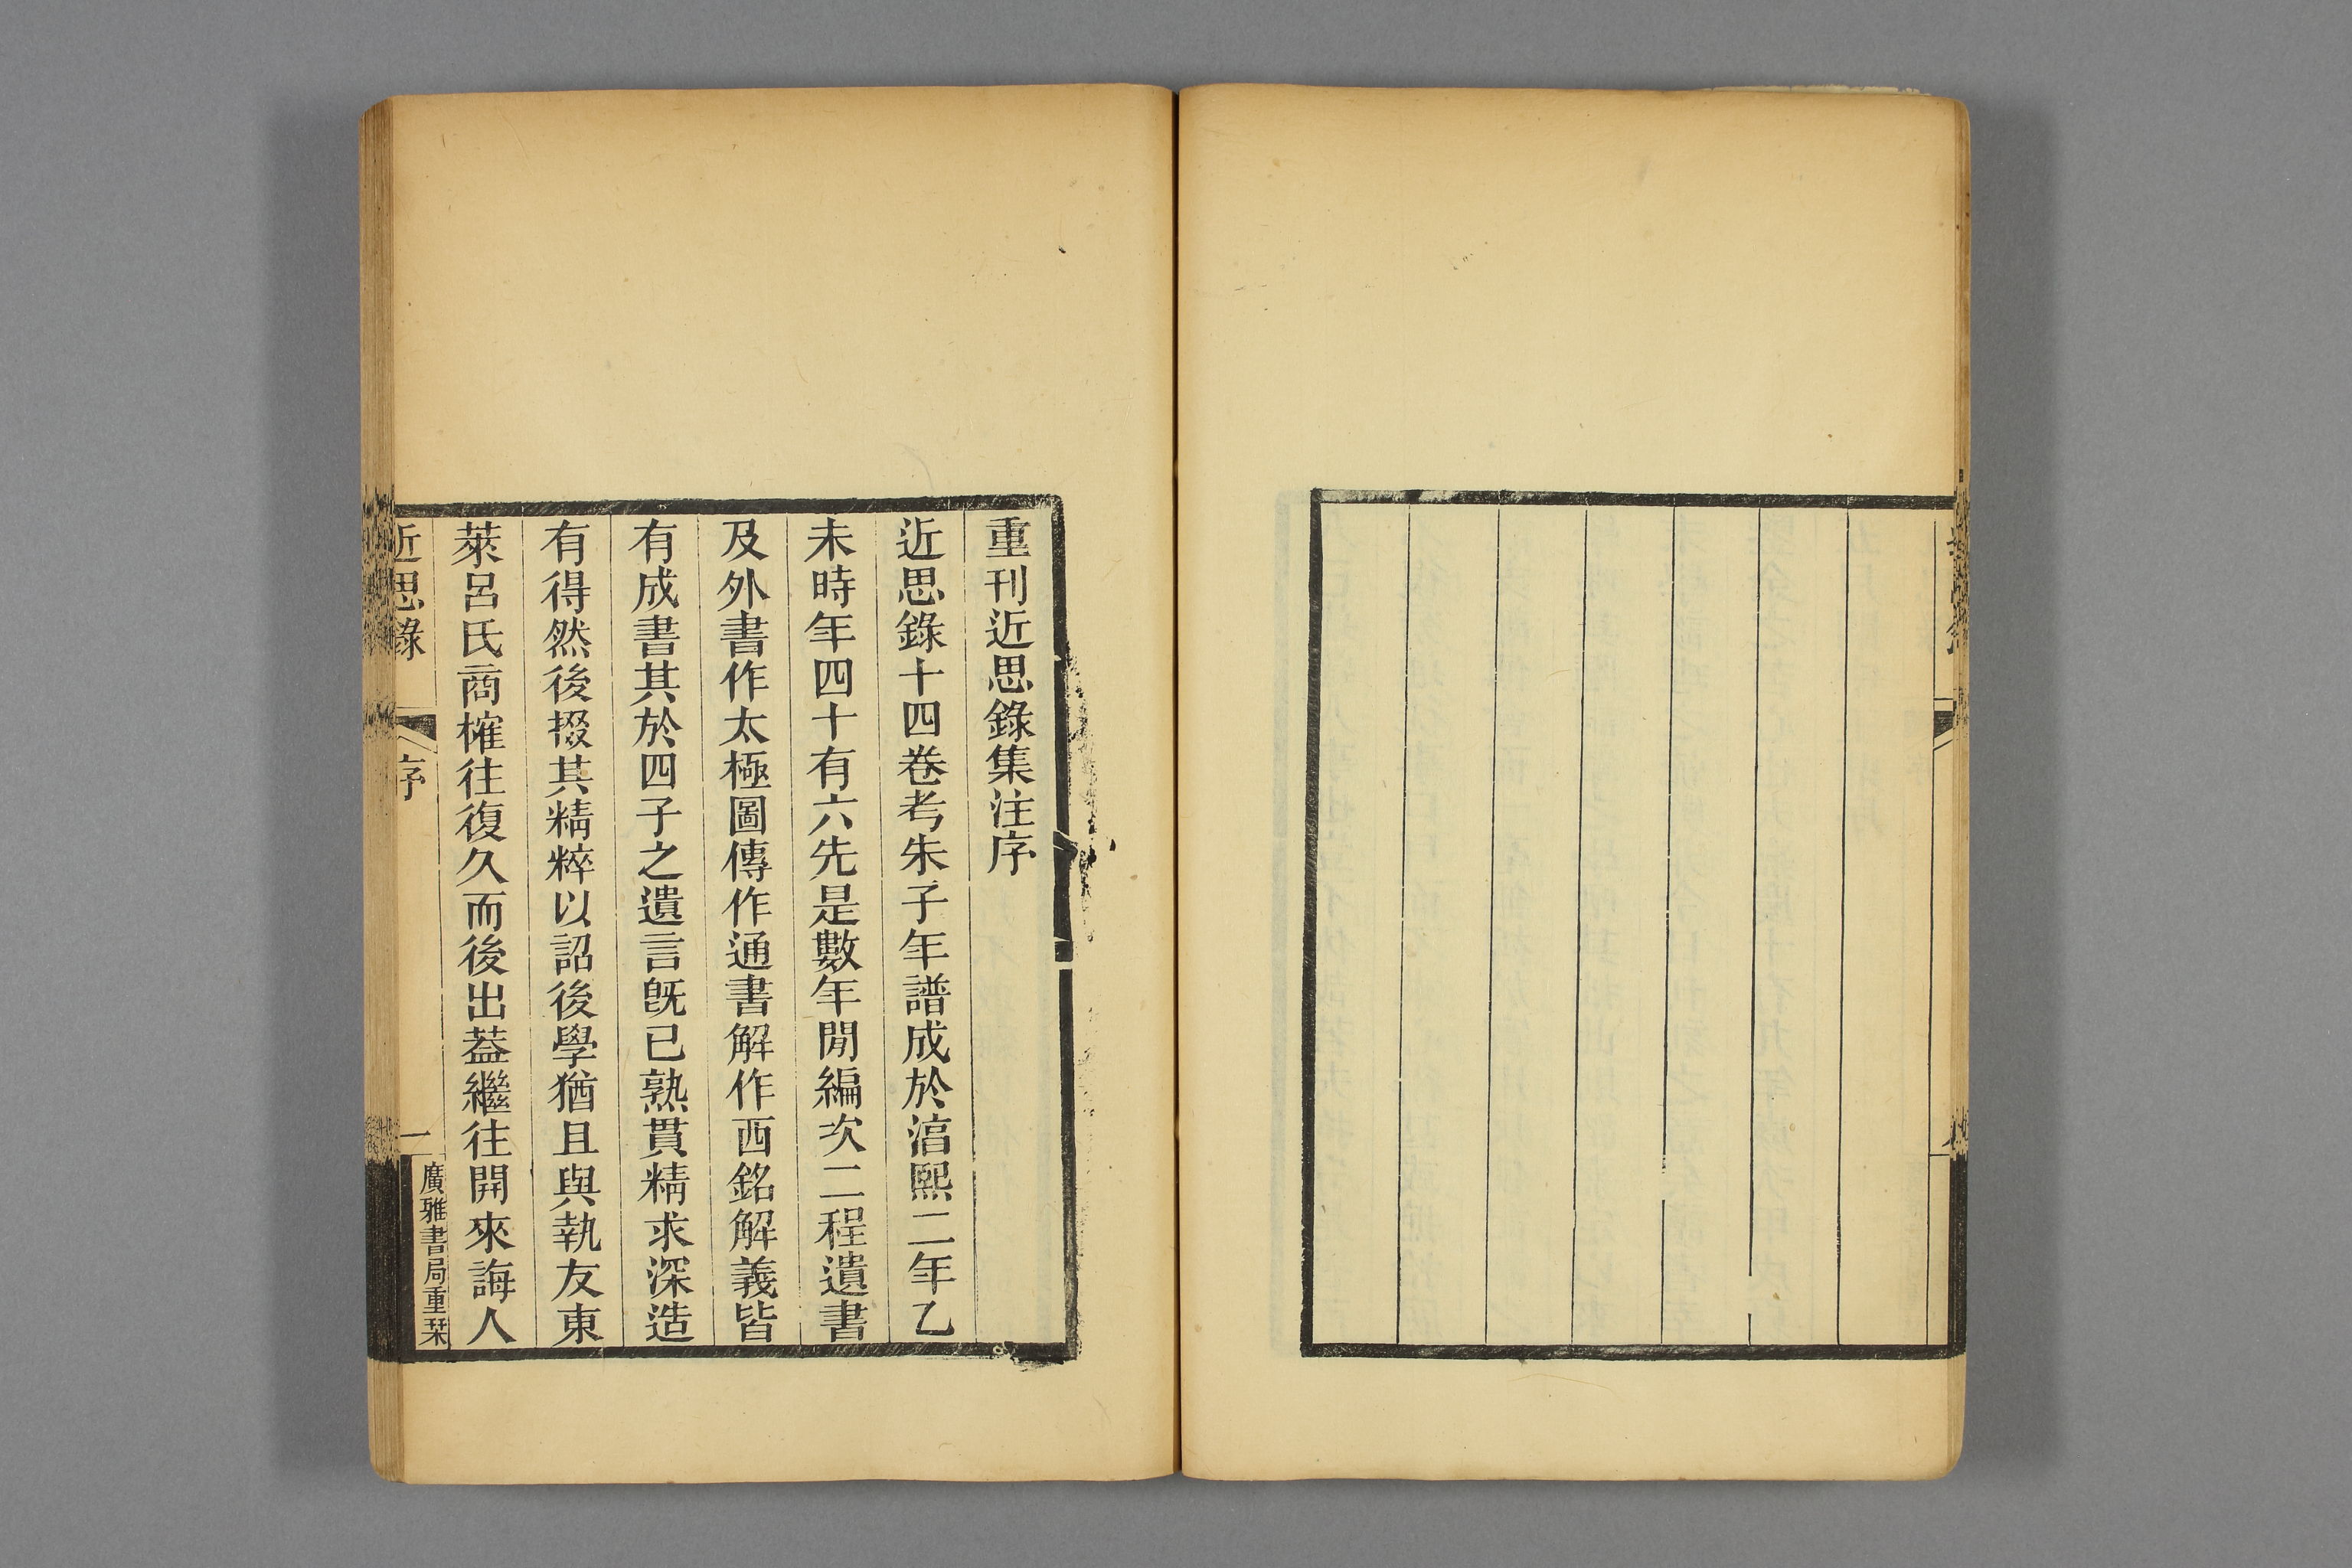 重刊近思錄集注序
近思錄十四卷考朱子年譜成於湻熙二年乙
未時年四十有六先是數年閒編次二程遺書
及外書作太極圖傳作通書解作西銘解義皆
有成書其於四子之遺言旣已熟貫精求深造
有得然後掇其精粹以詔後學猶且與執友東
萊呂氏商榷往復久而後出葢繼往開來誨人
近思錄
序
一
廣雅書局重栞